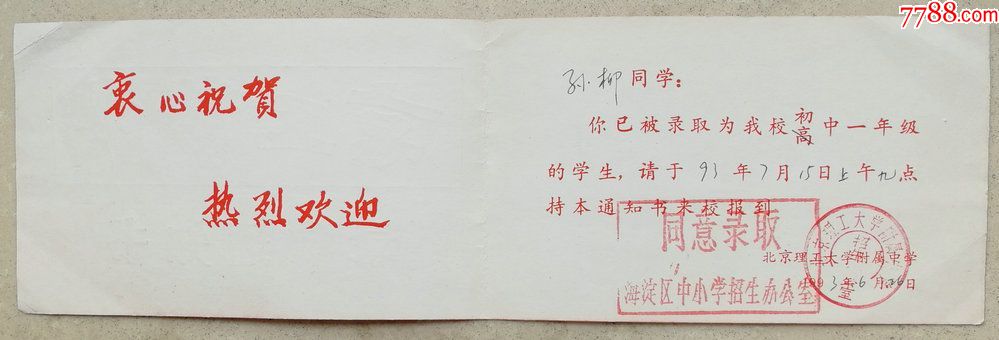 7788.com
衷心祝贺
热烈欢迎
孙柳同学：
你已被录取为我校初高中一年级
的学生，请于93年7月15日上午九点
持本通知书来校报到
同意录取
海淀区中小学招生办公室
北京理工大学附属中学
1993年6月26日